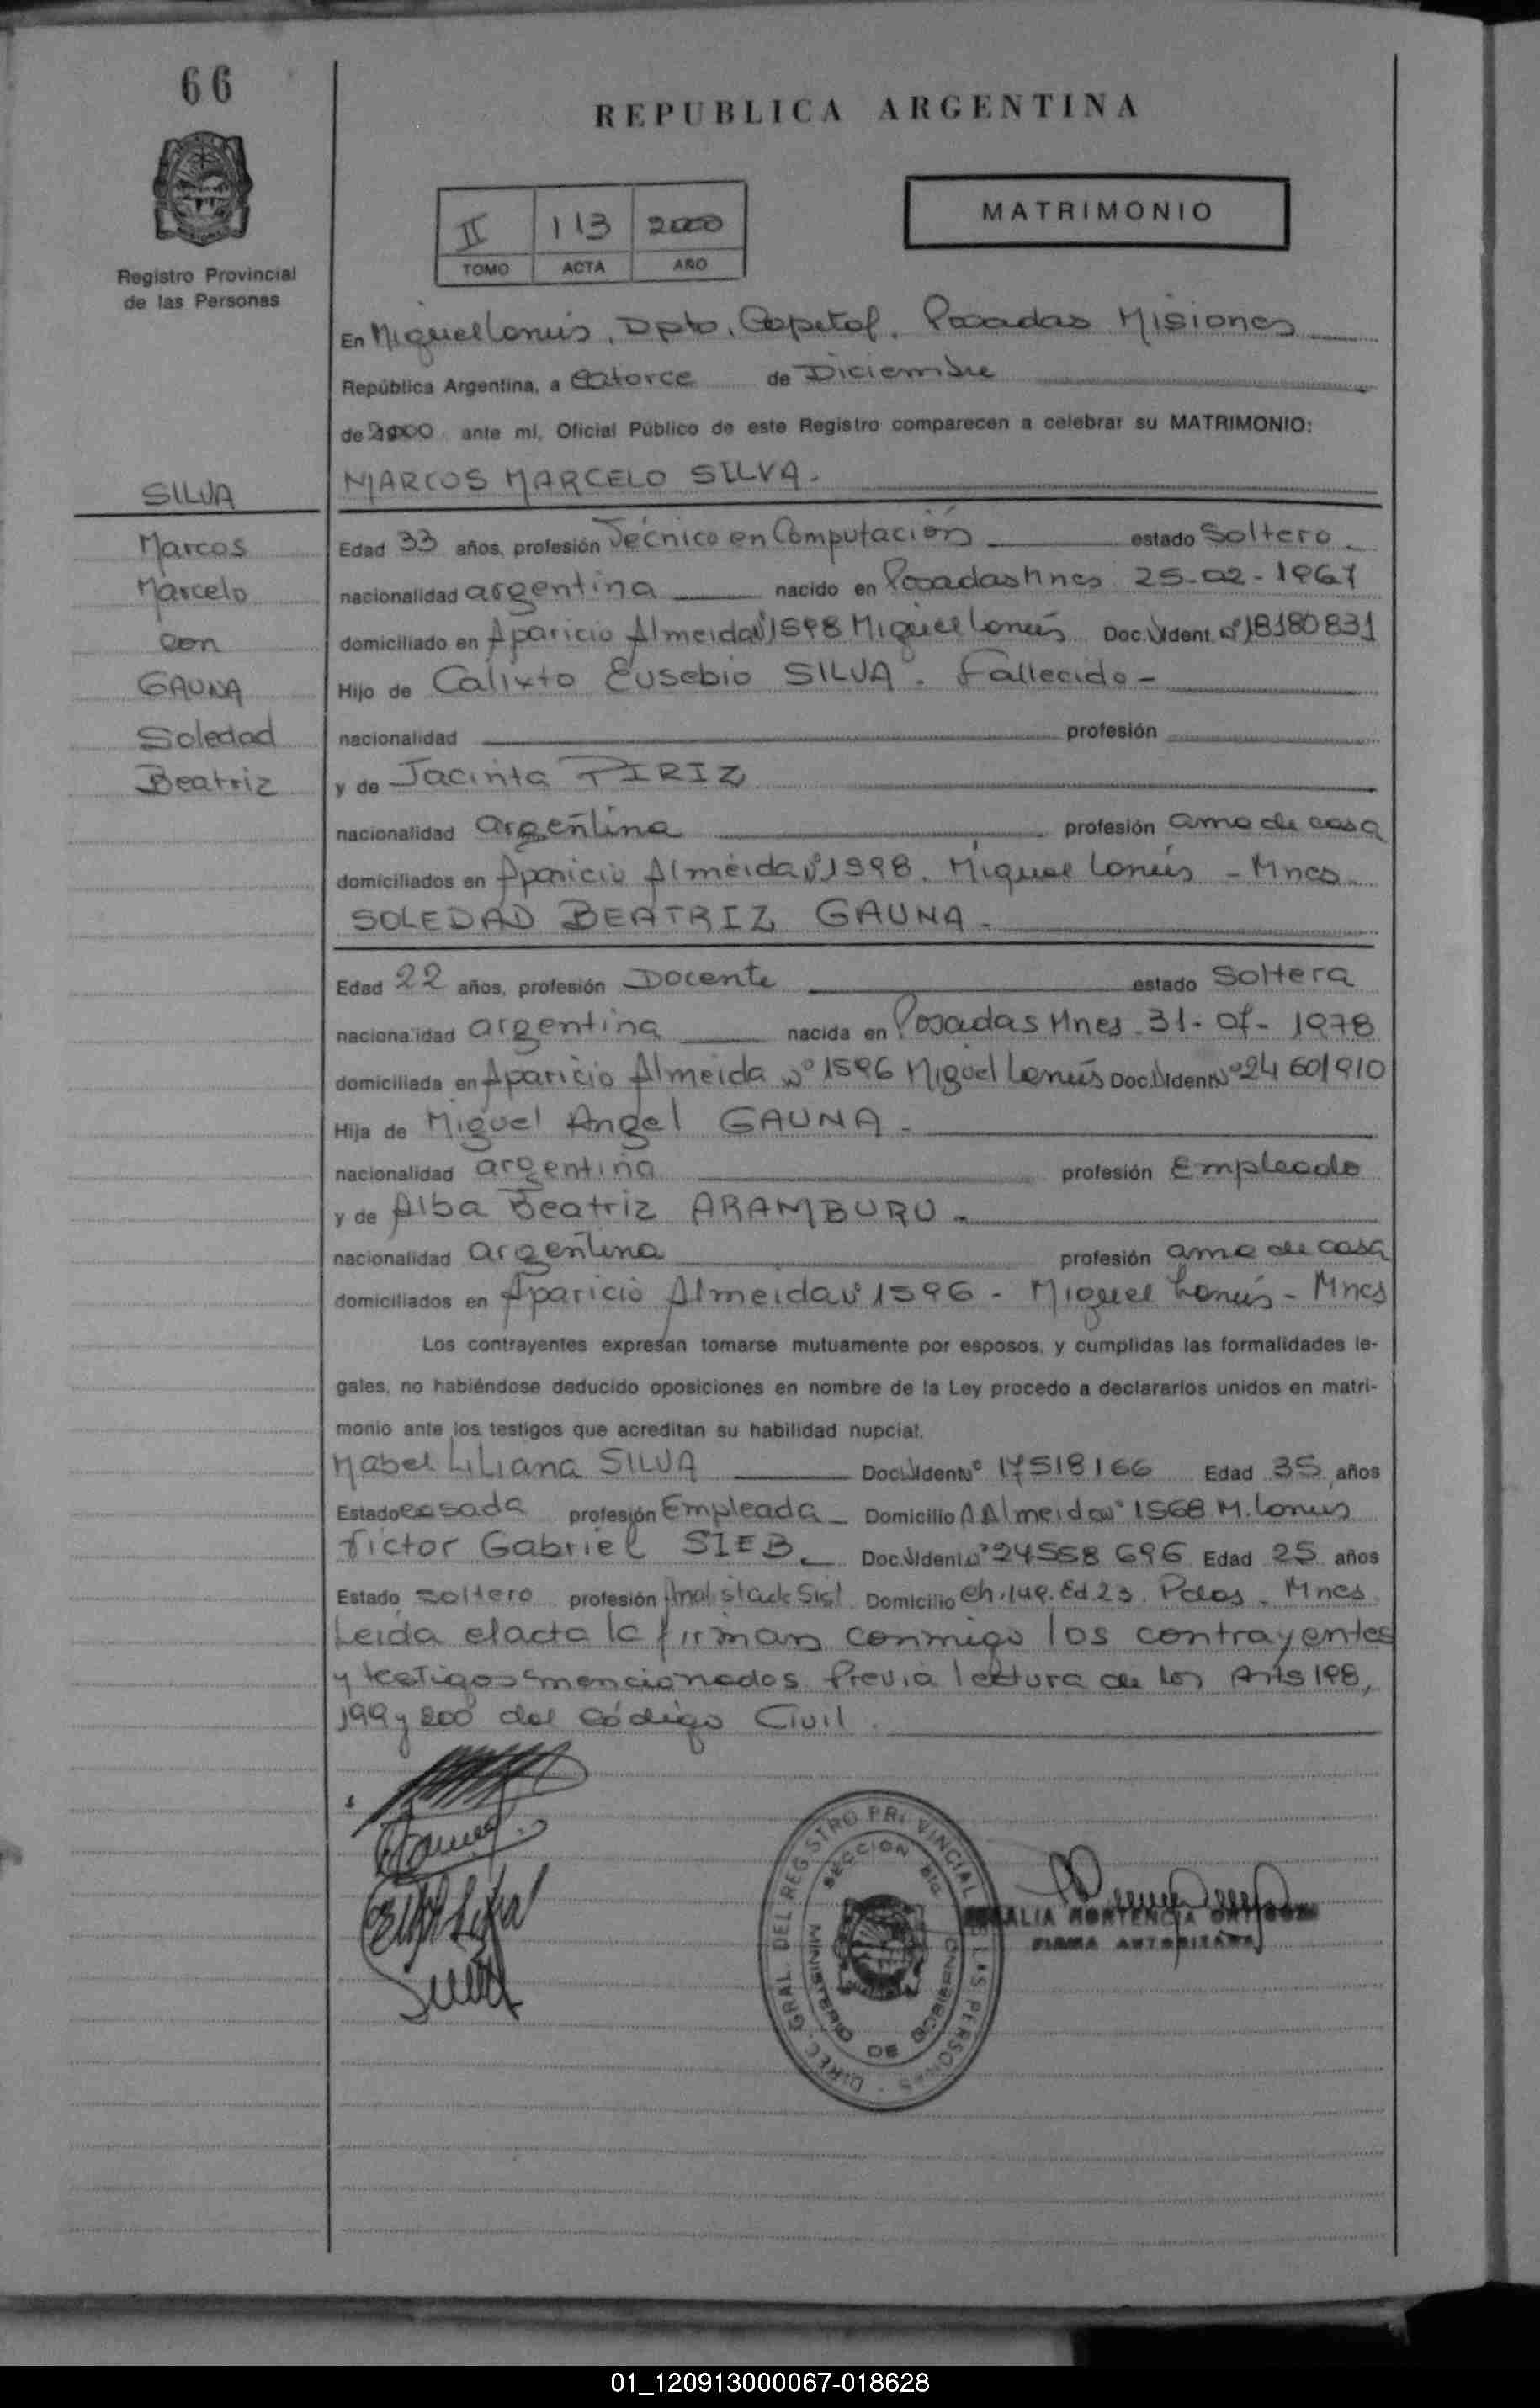 66
REPUBLICA ARGENTINA
MATRIMONIO
II 113 2000
TOMO ACTA AÑO
Registro Provincial
de las Personas
En Miguel Lanús, Dpto. Capital. Posadas Misiones
República Argentina, a Catorce de Diciembre
de 2000 ante mí, Oficial Público de este Registro comparecen a celebrar su MATRIMONIO:
SILVA
MARCOS MARCELO SILVA.
Marcos
Edad 33 años, profesión Técnico en Computación estado Soltero
Marcelo
nacionalidad argentina nacido en Posadas Mnes 25-02-1967
con
domiciliado en Aparicio Almeida Nº 1598 Miguel Lanús Doc. Ident. Nº 18180831
GAUNA
Hijo de Calixto Eusebio SILVA. Fallecido-
Soledad
nacionalidad profesión
Beatriz
y de Jacinta PIRIZ
nacionalidad argentina profesión ama de casa
domiciliados en Aparicio Almeida Nº 1598. Miguel Lanús - Mnes
SOLEDAD BEATRIZ GAUNA.
Edad 22 años, profesión Docente estado Soltera
nacionalidad argentina nacida en Posadas Mnes 31-07-1978
domiciliada en Aparicio Almeida Nº 1596 Miguel Lanús Doc. Ident Nº 24601910
Hija de Miguel Angel GAUNA.
nacionalidad argentina profesión Empleado
y de Alba Beatriz ARAMBURU.
nacionalidad argentina profesión ama de casa
domiciliados en Aparicio Almeida Nº 1596 - Miguel Lanús - Mnes
Los contrayentes expresan tomarse mutuamente por esposos, y cumplidas las formalidades le-
gales, no habiéndose deducido oposiciones en nombre de la Ley procedo a declararlos unidos en matri-
monio ante los testigos que acreditan su habilidad nupcial.
Mabel Liliana SILVA Doc. Ident Nº 17518166 Edad 35 años
Estado casada profesión Empleada Domicilio A Almeida Nº 1568 M. Lanus
Victor Gabriel SIEB. Doc. Ident Nº 24558696 Edad 25 años
Estado soltero profesión Analista de Sist. Domicilio Ch. 149. Ed. 23. Pdas. Mnes
Leida el acta la firman conmigo los contrayentes
y testigos mencionados. Previa lectura de los Arts 198,
199 y 200 del Código Civil.
DIREC. GRAL. DEL REGISTRO PROVINCIAL DE LAS PERSONAS
SECCION
MINISTERIO DE GOBIERNO
HORTENCIA
FIRMA AUTORIZADA
01_120913000067-018628